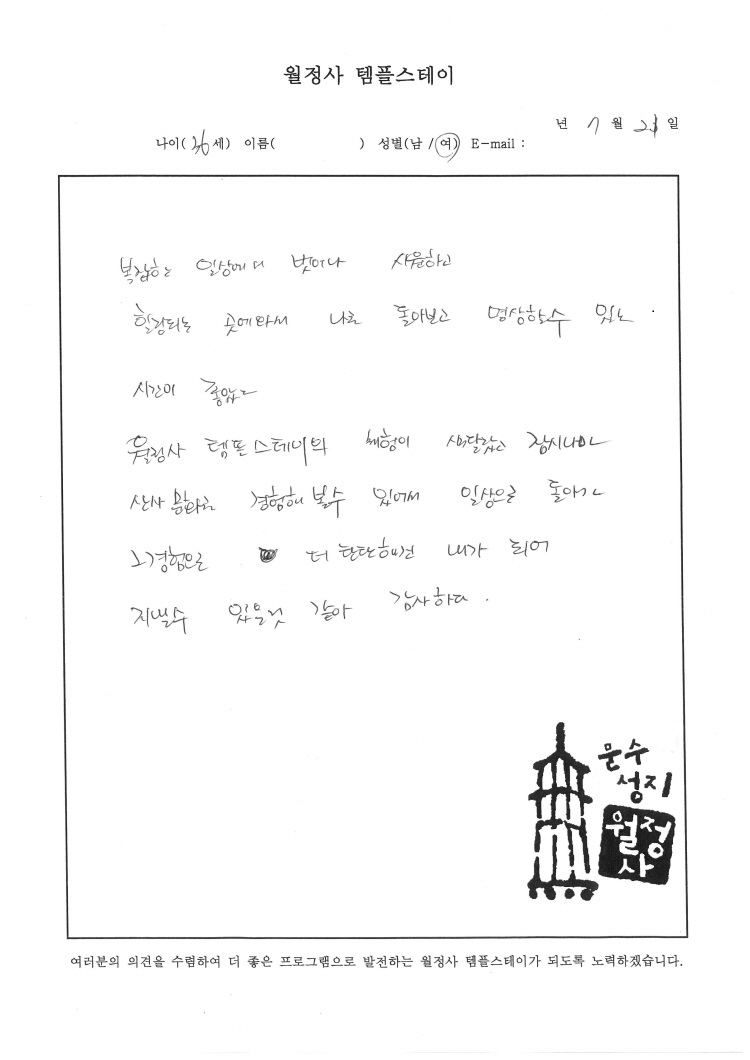 월정사 템플스테이
년 7 월 21 일
나이( 36 세) 이름( ) 성별(남 / 여) E-mail :
복잡한 일상에서 벗어나 사유하고
힐링되는 곳에와서 나를 돌아보고 명상할수 있는
시간이 좋았다
월정사 템플스테이의 체험이 색달랐고 잠시나마
산사 문화를 경험해 볼수 있어서 일상으로 돌아가
그경험으로 더 탄탄해진 내가 되어
지낼수 있을것 같아 감사하다.
문수
성지
월정
사
여러분의 의견을 수렴하여 더 좋은 프로그램으로 발전하는 월정사 템플스테이가 되도록 노력하겠습니다.